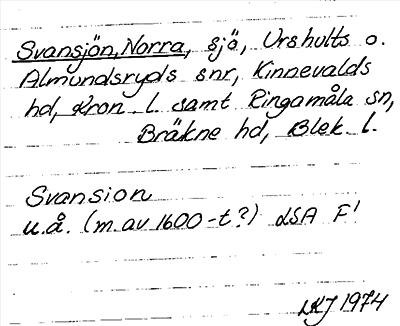 Svansjön, Norra, sjö, Urshults o.
Almundsryds snr, Kinnevalds
hd, Kron. l. samt Ringamåla sn,
Bräkne hd, Blek. l.
Svansion
u.å. (m. av 1600-t?) LSA F¹
LKJ 1974